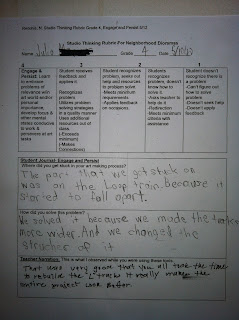 Studio Thinking Rubric Grade 4, Engage and Persist 5/12
Studio Thinking Rubric For Neighborhood Dioramas
Name Grade 4 Date
4
3
2
1
Engage & Persist: Learn to embrace problems of relevance within the art world and/or personal importance, to develop focus and other mental states conducive to working & persevering at art tasks
Student received feedback and applied it
Recognizes problem
Utilizes problem solving strategies in a quality manner
Uses additional resources out of class
(-Exceeds minimum)
(-Makes Connections)
Student recognizes problem, seeks out help and resources to problem solve
-Meets minimum requirements
-Applies feedback on occasion
Student recognizes problem, doesn't know how to solve it.
-Asks teacher to help do it
-Redirection
-Meets minimum criteria with assistance
Student doesn't recognize there is a problem
-Can't figure out how to solve problem
-Doesn't seek help
-Doesn't apply feedback
Student Journal: Engage and Persist
Where did you get stuck in your art making process?
The part that we got stuck on
was on the loop train. because it
started to fall apart.
How did you solve this problem?
We solved it because we made the
more wider. And we changed the
strucher of it
Teacher Narrative: This is what I observed while you were using these tools.
That was very good that you all took the time
to rebuild the "L" tracks it really makes the
entire project look better.